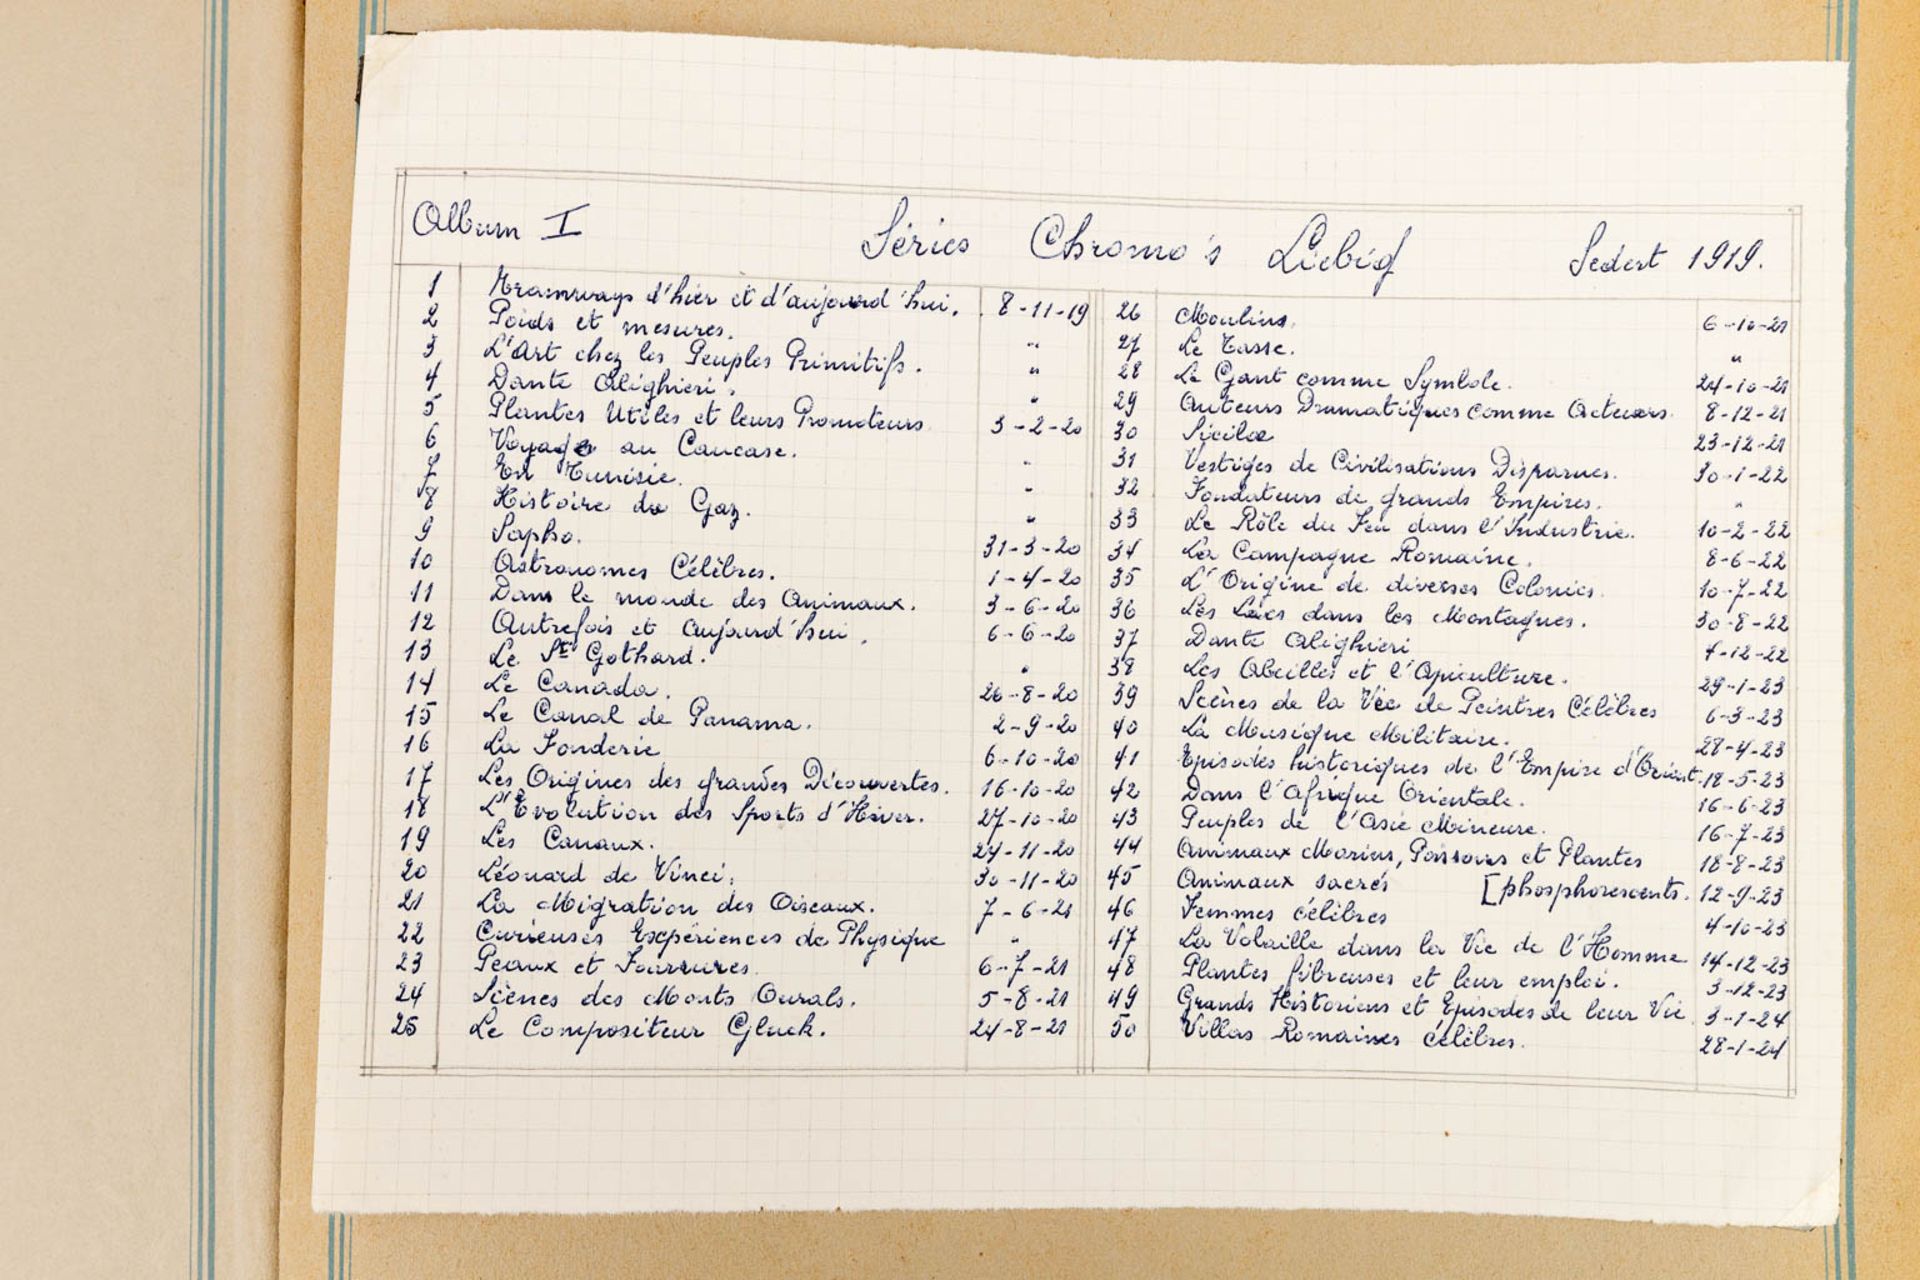 Album I Séries Chromo's Liebig Sedert 1919.
1 Tramways d'hier et d'aujourd'hui. 8-11-19
2 Poids et mesures. "
3 L'Art chez les Peuples Primitifs. "
4 Dante Alighieri. "
5 Plantes Utiles et leurs Promoteurs 3-2-20
6 Voyage au Caucase. "
7 En Tunisie. "
8 Histoire du Gaz. "
9 Sapho. 31-3-20
10 Astronomes Célèbres. 1-4-20
11 Dans le monde des Animaux. 3-6-20
12 Autrefois et Aujourd'hui. 6-6-20
13 Le St Gothard. "
14 Le Canada. 26-8-20
15 Le Canal de Panama. 2-9-20
16 La Fonderie 6-10-20
17 Les Origines des grandes Découvertes. 16-10-20
18 L'Evolution des Sports d'Hiver. 27-10-20
19 Les Canaux. 24-11-20
20 Léonard de Vinci. 30-11-20
21 La Migration des Oiseaux. 7-6-21
22 Curieuses Expériences de Physique "
23 Peaux et Fourrures. 6-7-21
24 Scènes des Monts Ourals. 5-8-21
25 Le Compositeur Gluck. 24-8-21
26 Moulins. 6-10-21
27 Le Tasse. "
28 Le Gant comme Symbole. 24-10-21
29 Auteurs Dramatiques comme Acteurs. 8-12-21
30 Sicile 23-12-21
31 Vestiges de Civilisations Disparues. 30-1-22
32 Fondateurs de grands Empires. "
33 Le Rôle du Feu dans l'Industrie. 10-2-22
34 La Campagne Romaine. 8-6-22
35 L'Origine de diverses Colonies. 10-7-22
36 Les Lacs dans les Montagnes. 30-8-22
37 Dante Alighieri 4-12-22
38 Les Abeilles et l'Apiculture. 29-1-23
39 Scènes de la Vie de Peintres Célèbres 6-3-23
40 La Musique Militaire. 28-4-23
41 Episodes historiques de l'Empire d'Orient. 18-5-23
42 Dans l'Afrique Orientale. 16-6-23
43 Peuples de l'Asie Mineure. 16-7-23
44 Animaux Marins, Poissons et Plantes 18-8-23
45 Animaux sacrés [phosphorescents. 12-9-23
46 Femmes célèbres 4-10-23
47 La Volaille dans la Vie de l'Homme 14-12-23
48 Plantes fibreuses et leur emploi. 3-12-23
49 Grands Historiens et Episodes de leur Vie 3-1-24
50 Villas Romaines célèbres. 28-1-24